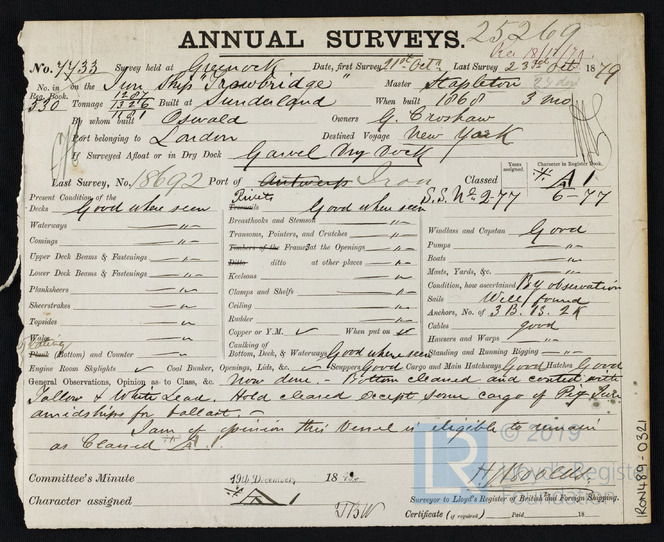 25269
ANNUAL SURVEYS.
No. 7733 Survey held at Greenock Date, first Survey 21st Oct. Last Survey 23rd Oct. 1879
No. in Reg. Book. 530 on the Iron Ship "Trowbridge" Master Stapleton
Tonnage 1287 1326 1181 Built at Sunderland When built 1868 3 mo
By whom built Oswald Owners G. Croshaw
Port belonging to London Destined Voyage New York
If Surveyed Afloat or in Dry Dock Garvel Dry Dock
Years assigned. Character in Register Book.
Last Survey, No. 18692 Port of Antwerp Iron Classed A1
S.S. No 2-77 6-77
Present Condition of the
Decks Good where seen
Waterways
Comings
Upper Deck Beams & Fastenings
Lower Deck Beams & Fastenings
Planksheers
Sheerstrakes
Topsides
Wales
Plank (Bottom) and Counter
Rivets
Treenails Good where seen
Breasthooks and Stemson
Transoms, Pointers, and Crutches
Timbers of the Frame at the Openings
Ditto ditto at other places
Keelsons
Clamps and Shelfs
Ceiling
Rudder
Copper or Y.M. When put on
Caulking of
Bottom, Deck, & Waterways Good where seen
Windlass and Capstan Good
Pumps
Boats
Masts, Yards, &c.
Condition, how ascertained By observation
Sails Well found
Anchors, No. of 3 B. 1 S. 2 K
Cables good
Hawsers and Warps
Standing and Running Rigging
Engine Room Skylights Coal Bunker, Openings, Lids, &c. Scuppers Good Cargo and Main Hatchways Good Hatches Good
General Observations, Opinion as to Class, &c. Now done. - Bottom cleaned and coated with
Tallow & White Lead. Hold cleared except some cargo of Pig Iron
amidships for ballast. -
I am of opinion this Vessel is eligible to remain
as Classed A.1.
Committee's Minute 19th December 18
Character assigned A 1
Surveyor to Lloyd's Register of British and Foreign Shipping.
Certificate (if required) Paid 18
© 2019
Lloyd's Register
Foundation
IRON489-0321